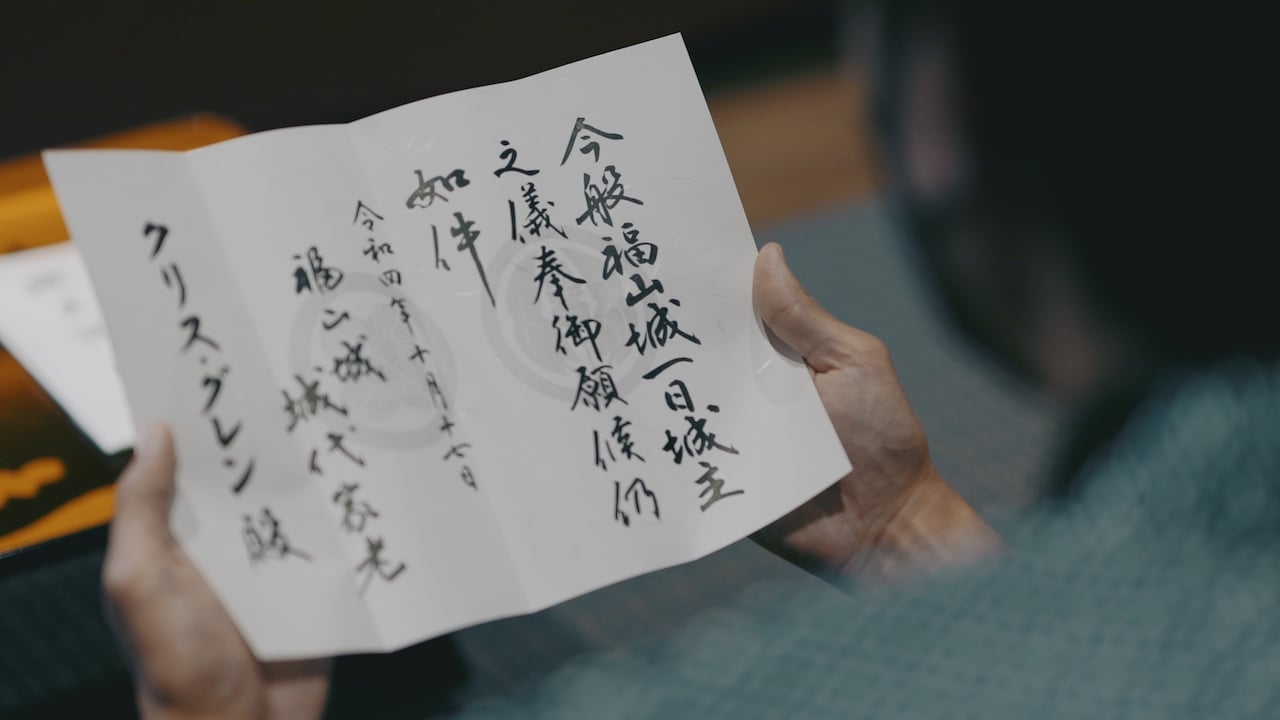 今般福山城一日城主
之儀奉御願候仍
如件
令和四年十月十七日
福山城
城代家老
クリス・グレン 殿